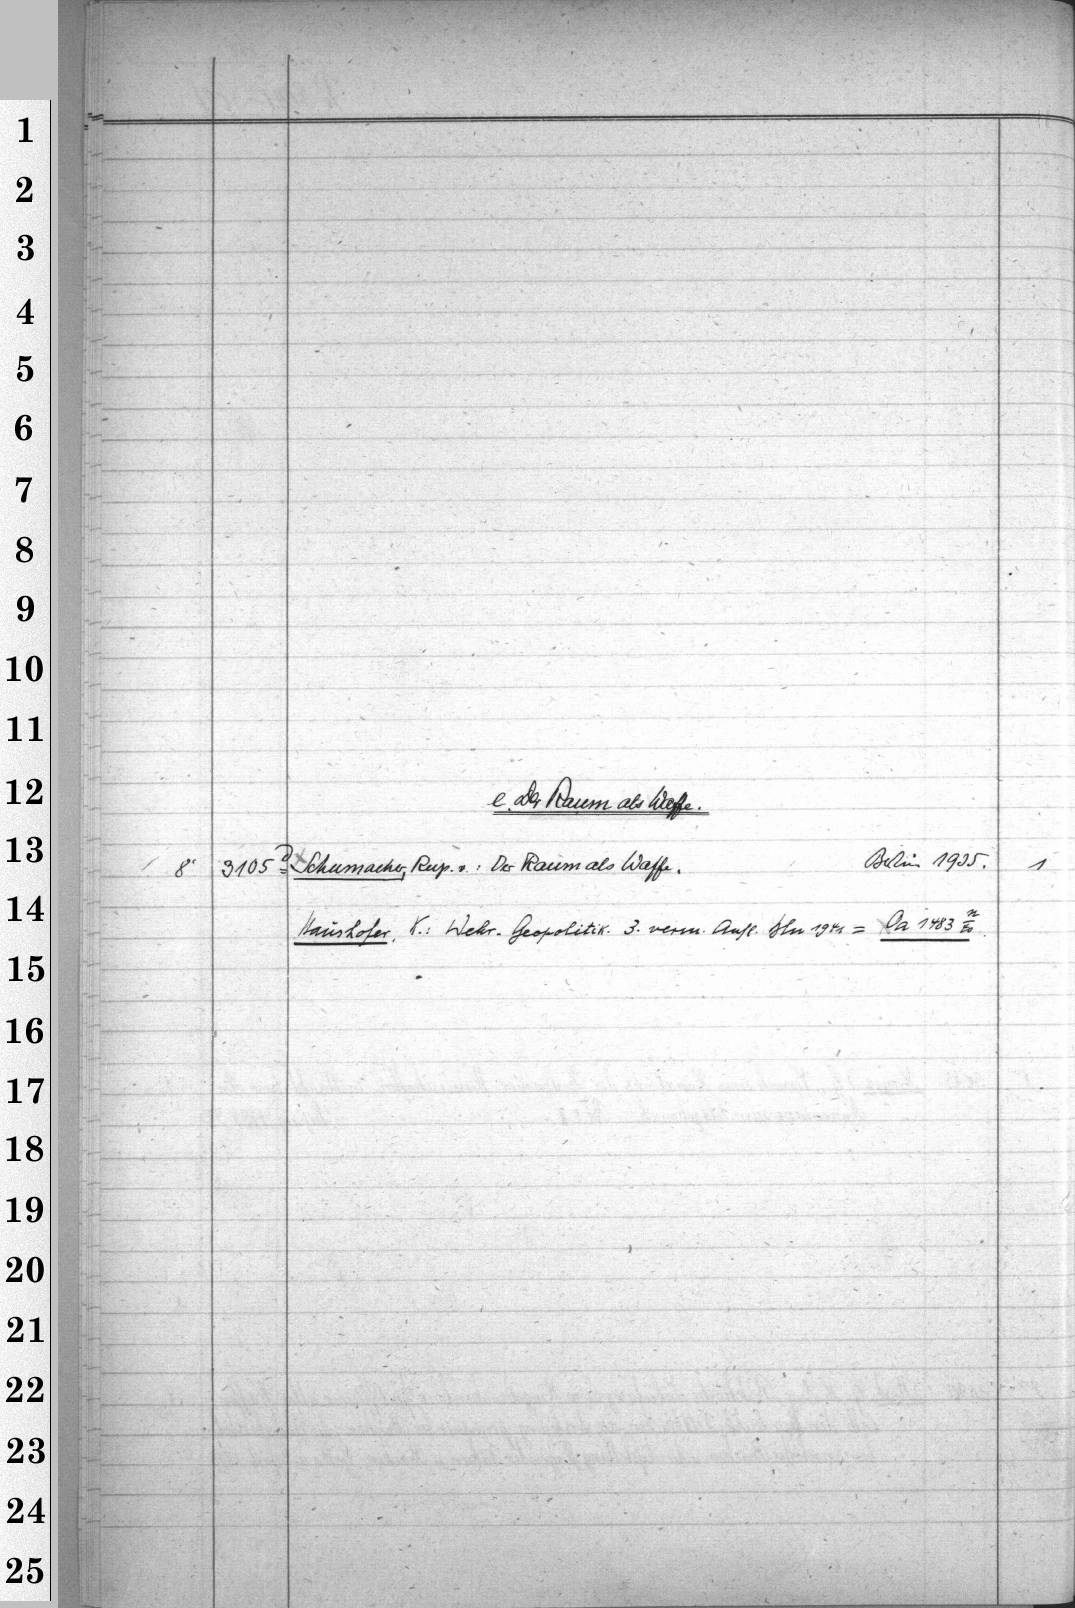 1
2
3
4
5
6
7
8
9
10
11
12
e. Der Raum als Waffe.
13
8° 3105 Schumacher, Rup. v.: Der Raum als Waffe. Berlin 1935. 1
14
Haushofer, K.: Wehr-Geopolitik. 3. verm. Aufl. Bln 1941 = Oa 1483
15
16
17
18
19
20
21
22
23
24
25